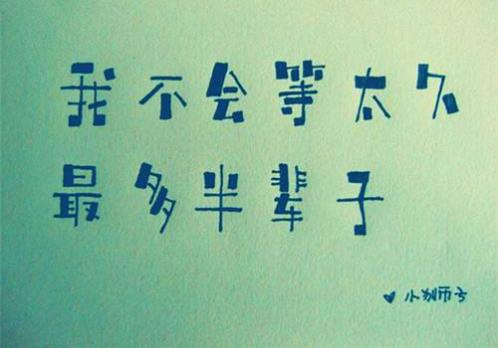 我不会等太久
最多半辈子
♥小狮方